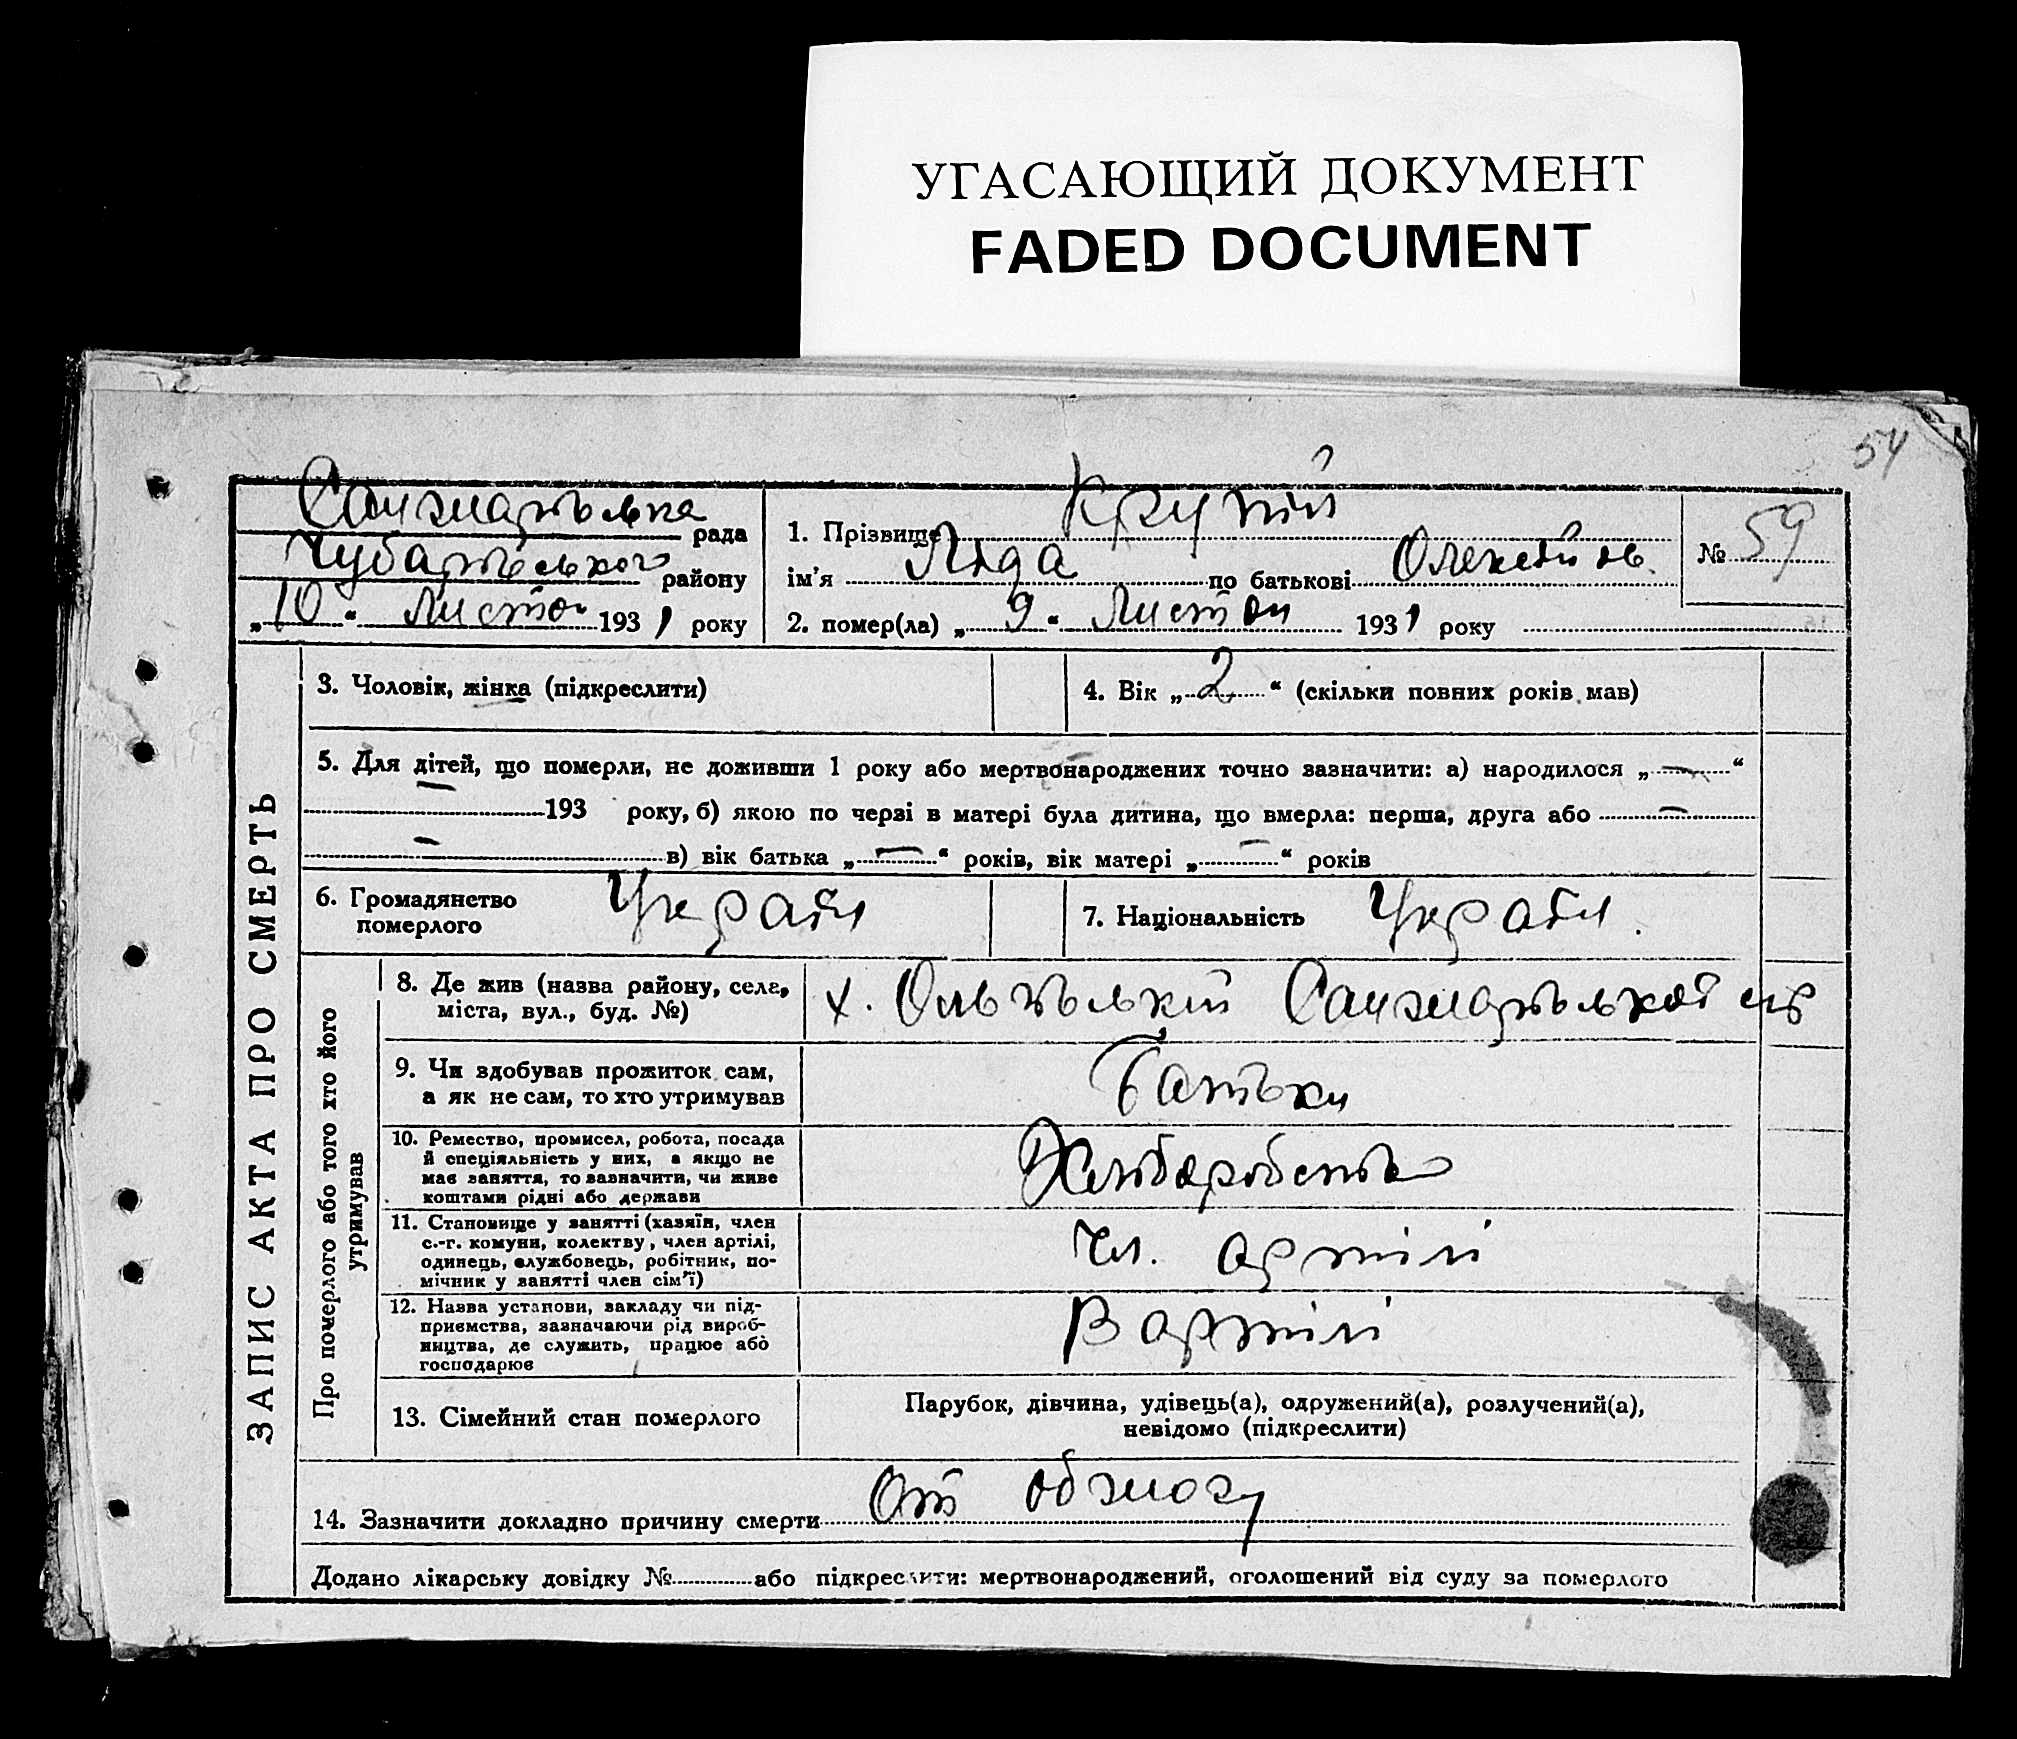 УГАСАЮЩИЙ ДОКУМЕНТ
FADED DOCUMENT
54
ЗАПИС АКТА ПРО СМЕРТЬ
рада
району
„10“ Листоп 1931 року
1. Прізвище Крупій
ім'я Ліда по батькові Олексіїв.
№ 59
2. помер(ла) „9“ Листоп 1931 року
3. Чоловік, жінка (підкреслити)
4. Вік „2“ (скільки повних років мав)
5. Для дітей, що померли, не доживши 1 року або мертвонароджених точно зазначити: а) народилося „—“
— 193 року, б) якою по черзі в матері була дитина, що вмерла: перша, друга або —
— в) вік батька „—“ років, вік матері „—“ років
6. Громадянство
померлого
Україн
7. Національність Україн.
Про померлого або того хто його
утримував
8. Де жив (назва району, села,
міста, вул., буд. №)
х.
9. Чи здобував прожиток сам,
а як не сам, то хто утримував
Батьки
10. Ремество, промисел, робота, посада
й спеціяльність у них, а якщо не
має заняття, то зазначити, чи живе
коштами рідні або держави
Хліборобств
11. Становище у занятті (хазяїн, член
с.-г. комуни, колективу, член артілі,
одинець, службовець, робітник, по-
мічник у занятті член сім'ї)
Чл. артілі
12. Назва установи, закладу чи під-
приємства, зазначаючи рід вироб-
ництва, де служить, працює або
господарює
В артілі
13. Сімейний стан померлого
Парубок, дівчина, удівець(а), одружений(а), розлучений(а),
невідомо (підкреслити)
14. Зазначити докладно причину смерти От обжогу
Додано лікарську довідку № або підкреслити: мертвонароджений, оголошений від суду за померлого